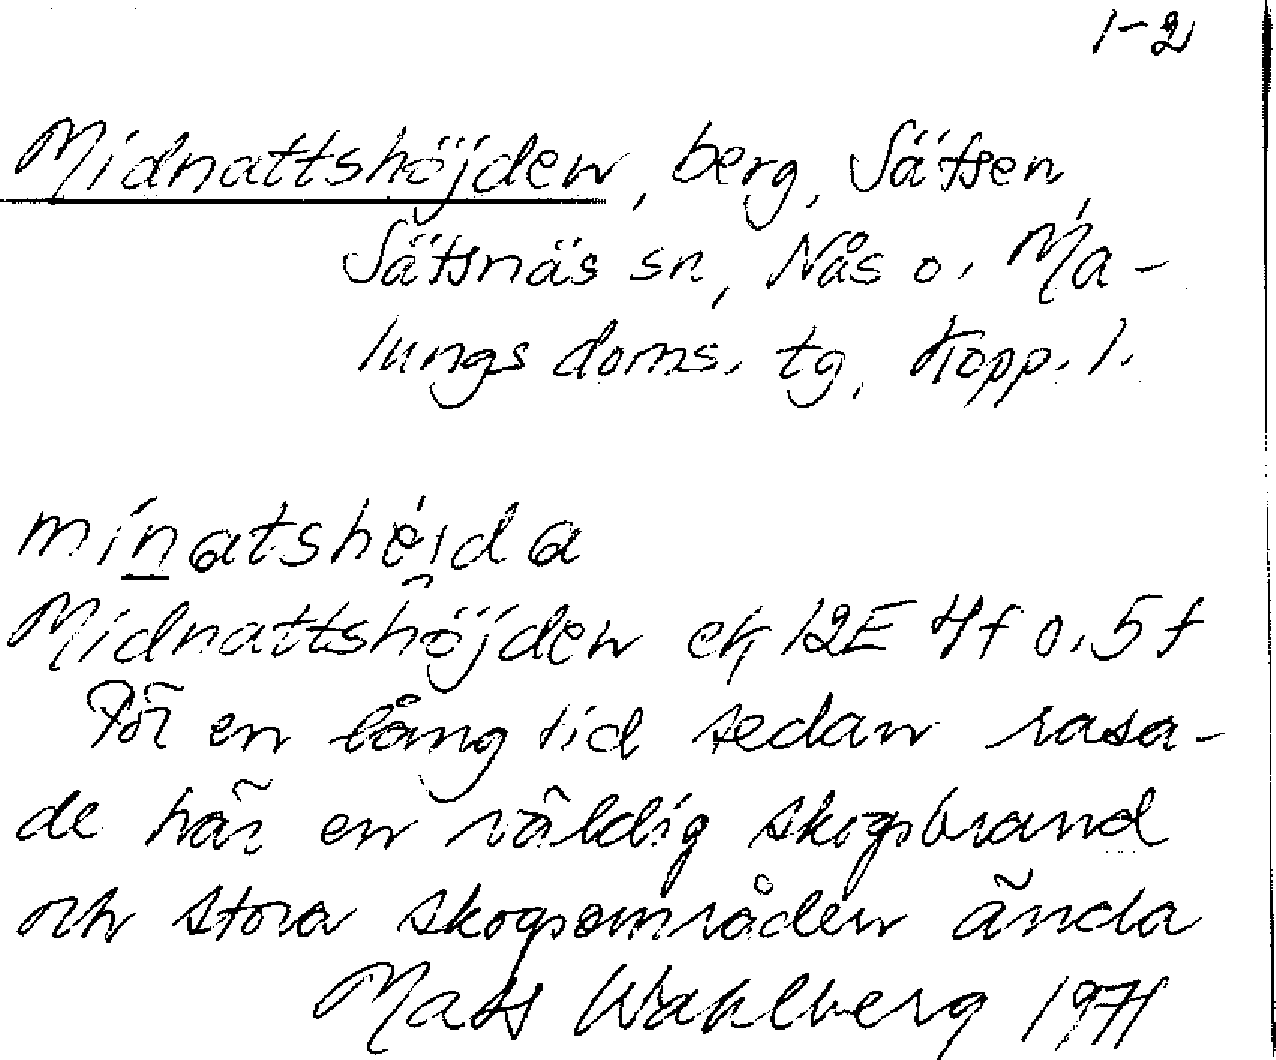 1-2
Midnattshöjden, berg, Sätsen,
Sätsnäs sn, Nås o. Ma-
lungs doms. tg, Kopp. l.
mínatshè̯ịda
Midnattshöjden ek 12E 4f o. 5f
För en lång tid sedan rasa-
de här en väldig skogsbrand
och stora skogsområden ända
Mats Wahlberg 1971